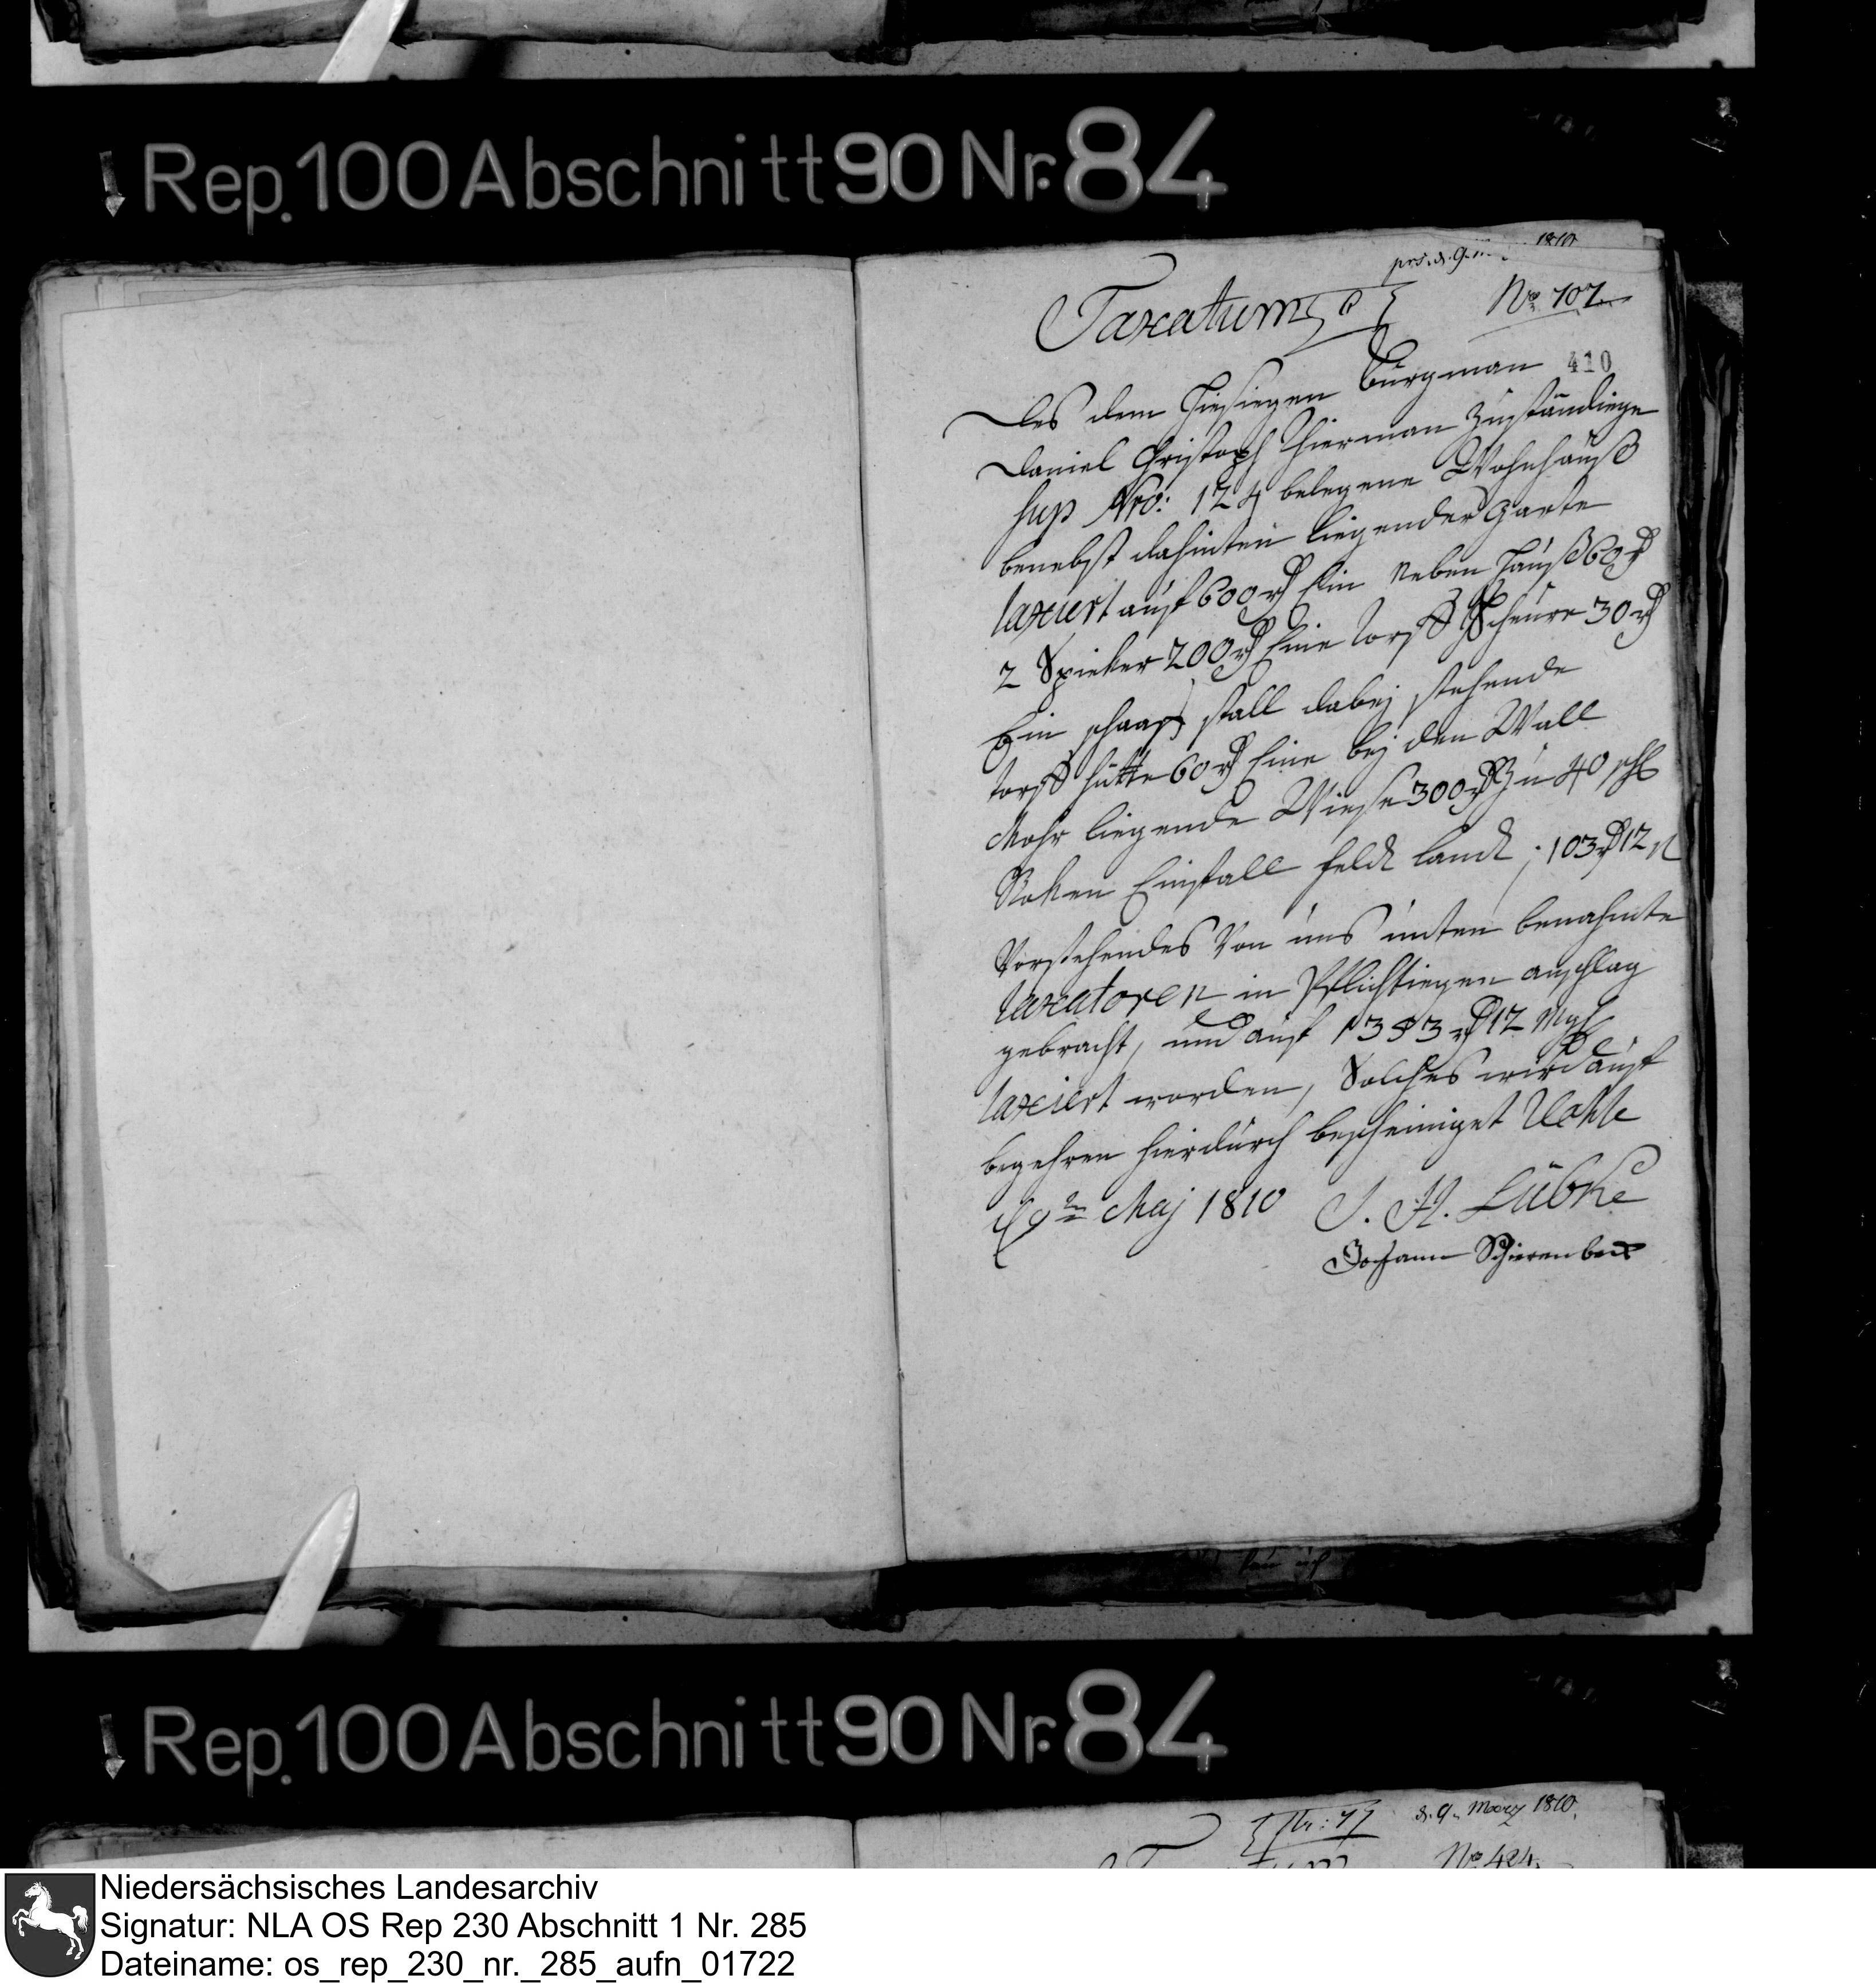 Rep. 100 Abschnitt 90 Nr. 84
prs. d. 9. 1810
Taxatum
No 707
410
des dem hiesigen Bürgman
Daniel Christoph Thierman zuständiege
sup Nro: 124 belegene Wohnhauß
benebst dahinten liegender Garte
taxiert auf 600 rth Ein Neben Hauß 60 rth
2 Spieker 200 rth Eine torff Scheure 30 rth
Ein schaaf stall dabej stehende
torff hütte 60 rth Eine bej den Wall
Mohr liegende Wiese 300 rth Zu 40 schl
Roken Einfall feld land; 103 rth 12
Vorstehendes Von uns unten benahmte
taxatoren in Pflichtiegen anschlag
gebracht, und auf 1353 rth 12 mgl
taxiert worden, Solches wird auf
begehren hierdurch bescheiniget
9ten Maj 1810 J. H. Lübke
Johann Schierenbeck
Rep. 100 Abschnitt 90 Nr. 84
d. 9. Maey 1810.
No 424.
Niedersächsisches Landesarchiv
Signatur: NLA OS Rep 230 Abschnitt 1 Nr. 285
Dateiname: os_rep_230_nr._285_aufn_01722